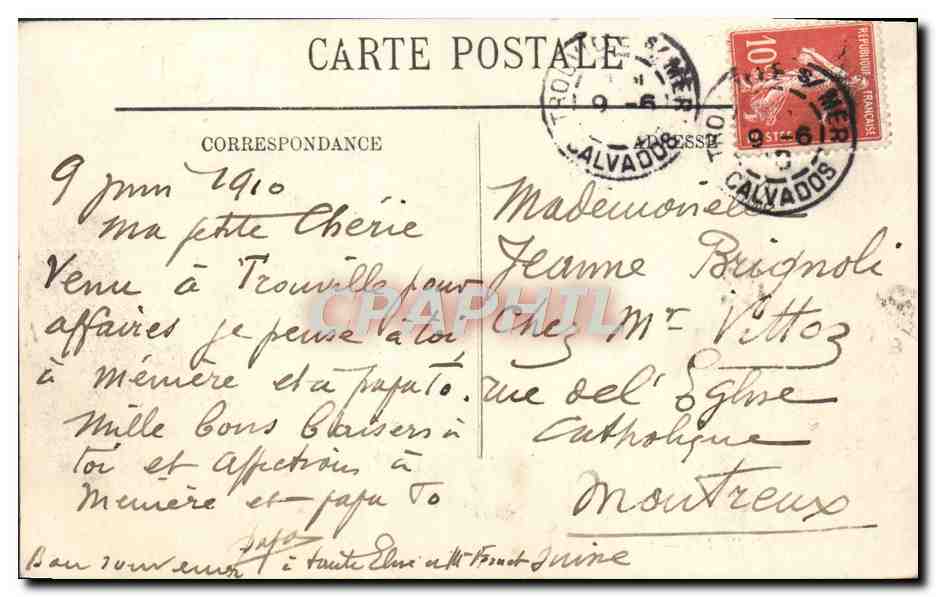 CARTE POSTALE
CORRESPONDANCE
ADRESSE
TROUVILLE S/ MER
9 -6
CALVADOS
TROUVILLE S/ MER
9 -6
10
CALVADOS
10
REPUBLIQUE FRANÇAISE
POSTES
9 juin 1910
ma petite Chérie
Venu à Trouville pour
affaires je pense à toi,
à Mémère et à papa To.
Mille bons baisers à
toi et affections à
Mémère et papa To
papa
Bon souvenir à tante Elise et Mr
Mademoiselle
Jeanne Brignoli
Chez Mr Vittoz
rue de l'Eglise
Catholique
Montreux
Suisse
CPAPHIL